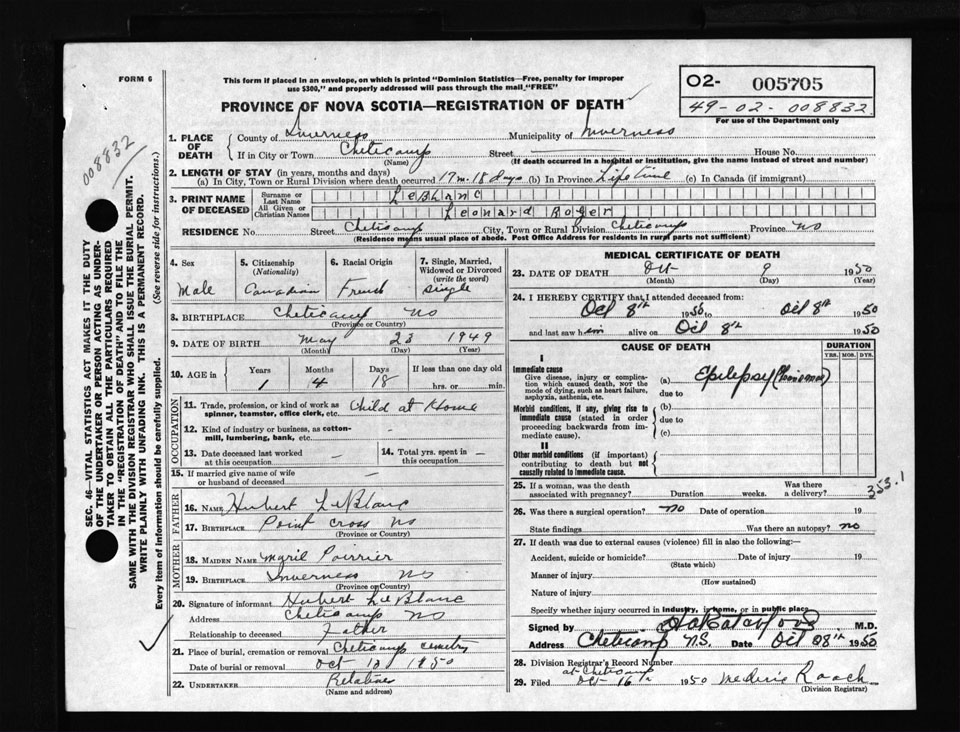 FORM 6
This form if placed in an envelope, on which is printed "Dominion Statistics—Free, penalty for improper
use $300," and properly addressed will pass through the mail "FREE"
PROVINCE OF NOVA SCOTIA—REGISTRATION OF DEATH
O2- 005705
49-02-008832
For use of the Department only
008832
1. PLACE OF DEATH
County of Inverness Municipality of Inverness
If in City or Town Cheticamp Street House No.
(Name) (If death occurred in a hospital or institution, give the name instead of street and number)
2. LENGTH OF STAY (in years, months and days)
(a) In City, Town or Rural Division where death occurred 17 m. 18 days (b) In Province Life time (c) In Canada (if immigrant)
3. PRINT NAME OF DECEASED
Surname or Last Name LeBlanc
All Given or Christian Names Leonard Roger
RESIDENCE No. Street Cheticamp City, Town or Rural Division Cheticamp Province NS
(Residence means usual place of abode. Post Office Address for residents in rural parts not sufficient)
4. Sex Male
5. Citizenship (Nationality) Canadian
6. Racial Origin French
7. Single, Married, Widowed or Divorced (write the word) Single
8. BIRTHPLACE Cheticamp NS
(Province or Country)
9. DATE OF BIRTH May 23 1949
(Month) (Day) (Year)
10. AGE in Years Months Days If less than one day old
1 4 18 hrs. or min.
OCCUPATION
11. Trade, profession, or kind of work as spinner, teamster, office clerk, etc. Child at Home
12. Kind of industry or business, as cotton-mill, lumbering, bank, etc. -
13. Date deceased last worked at this occupation -
14. Total yrs. spent in this occupation -
15. If married give name of wife or husband of deceased -
FATHER
16. Name Hubert LeBlanc
17. BIRTHPLACE Point Cross NS
(Province or Country)
MOTHER
18. MAIDEN NAME Poirrier
19. BIRTHPLACE Inverness NS
(Province or Country)
20. Signature of informant Hubert LeBlanc
Address Cheticamp NS
Relationship to deceased Father
21. Place of burial, cremation or removal Cheticamp cemetry
Date of burial or removal Oct 1950
22. UNDERTAKER Relatives
(Name and address)
MEDICAL CERTIFICATE OF DEATH
23. DATE OF DEATH Oct 9 1950
(Month) (Day) (Year)
24. I HEREBY CERTIFY that I attended deceased from
Oct 8th 1950 to Oct 8th 1950
and last saw him alive on Oct 8th 1950
CAUSE OF DEATH DURATION
YRS. MOS. DYS.
I
Immediate cause
Give disease, injury or complication which caused death, not the mode of dying, such as heart failure, asphyxia, asthenia, etc.
(a) Epilepsy
due to
Morbid conditions, if any, giving rise to immediate cause (stated in order proceeding backwards from immediate cause).
(b)
due to
(c)
II
Other morbid conditions (if important) contributing to death but not causally related to immediate cause.
353.1
25. If a woman, was the death associated with pregnancy? Duration weeks. Was there a delivery?
26. Was there a surgical operation? No Date of operation 19
State findings Was there an autopsy? No
27. If death was due to external causes (violence) fill in also the following:—
Accident, suicide or homicide? Date of injury 19
(State which)
Manner of injury
(How sustained)
Nature of injury
Specify whether injury occurred in industry, in home, or in public place
Signed by M.D.
Address Cheticamp N.S. Date 1950
28. Division Registrar's Record Number
at Cheticamp
29. Filed Oct 16th 1950 Mederic Roach
(Division Registrar)
SEC. 46—VITAL STATISTICS ACT MAKES IT THE DUTY
OF THE UNDERTAKER OR PERSON ACTING AS UNDERTAKER TO OBTAIN ALL THE PARTICULARS REQUIRED
IN THE "REGISTRATION OF DEATH" AND TO FILE THE
SAME WITH THE DIVISION REGISTRAR WHO SHALL ISSUE THE BURIAL PERMIT.
WRITE PLAINLY WITH UNFADING INK. THIS IS A PERMANENT RECORD.
Every item of information should be carefully supplied. (See reverse side for instructions.)